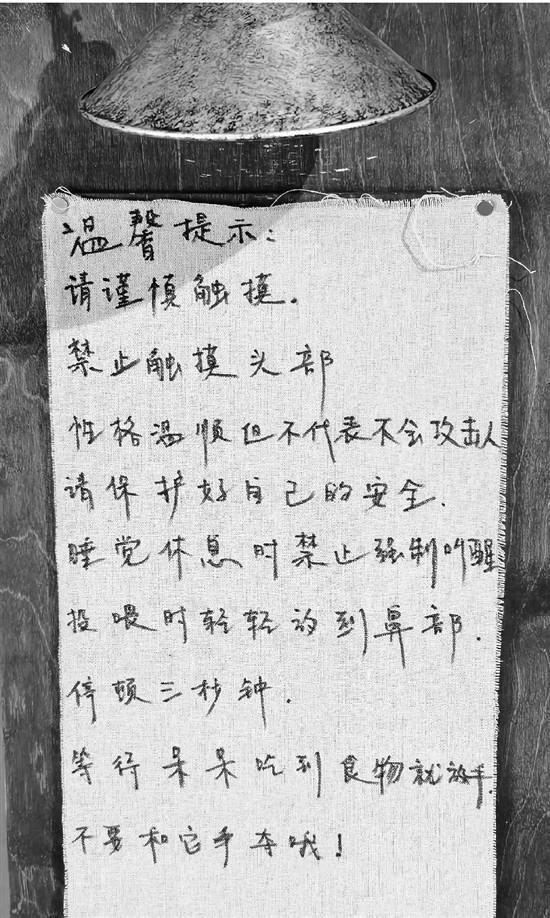 温馨提示：
请谨慎触摸．
禁止触摸头部
性格温顺但不代表不会攻击人
请保护好自己的安全．
睡觉休息时禁止强制吵醒
投喂时轻轻放到鼻部．
停顿三秒钟．
等行呆呆吃到食物就放手．
不要和它手夺哦！